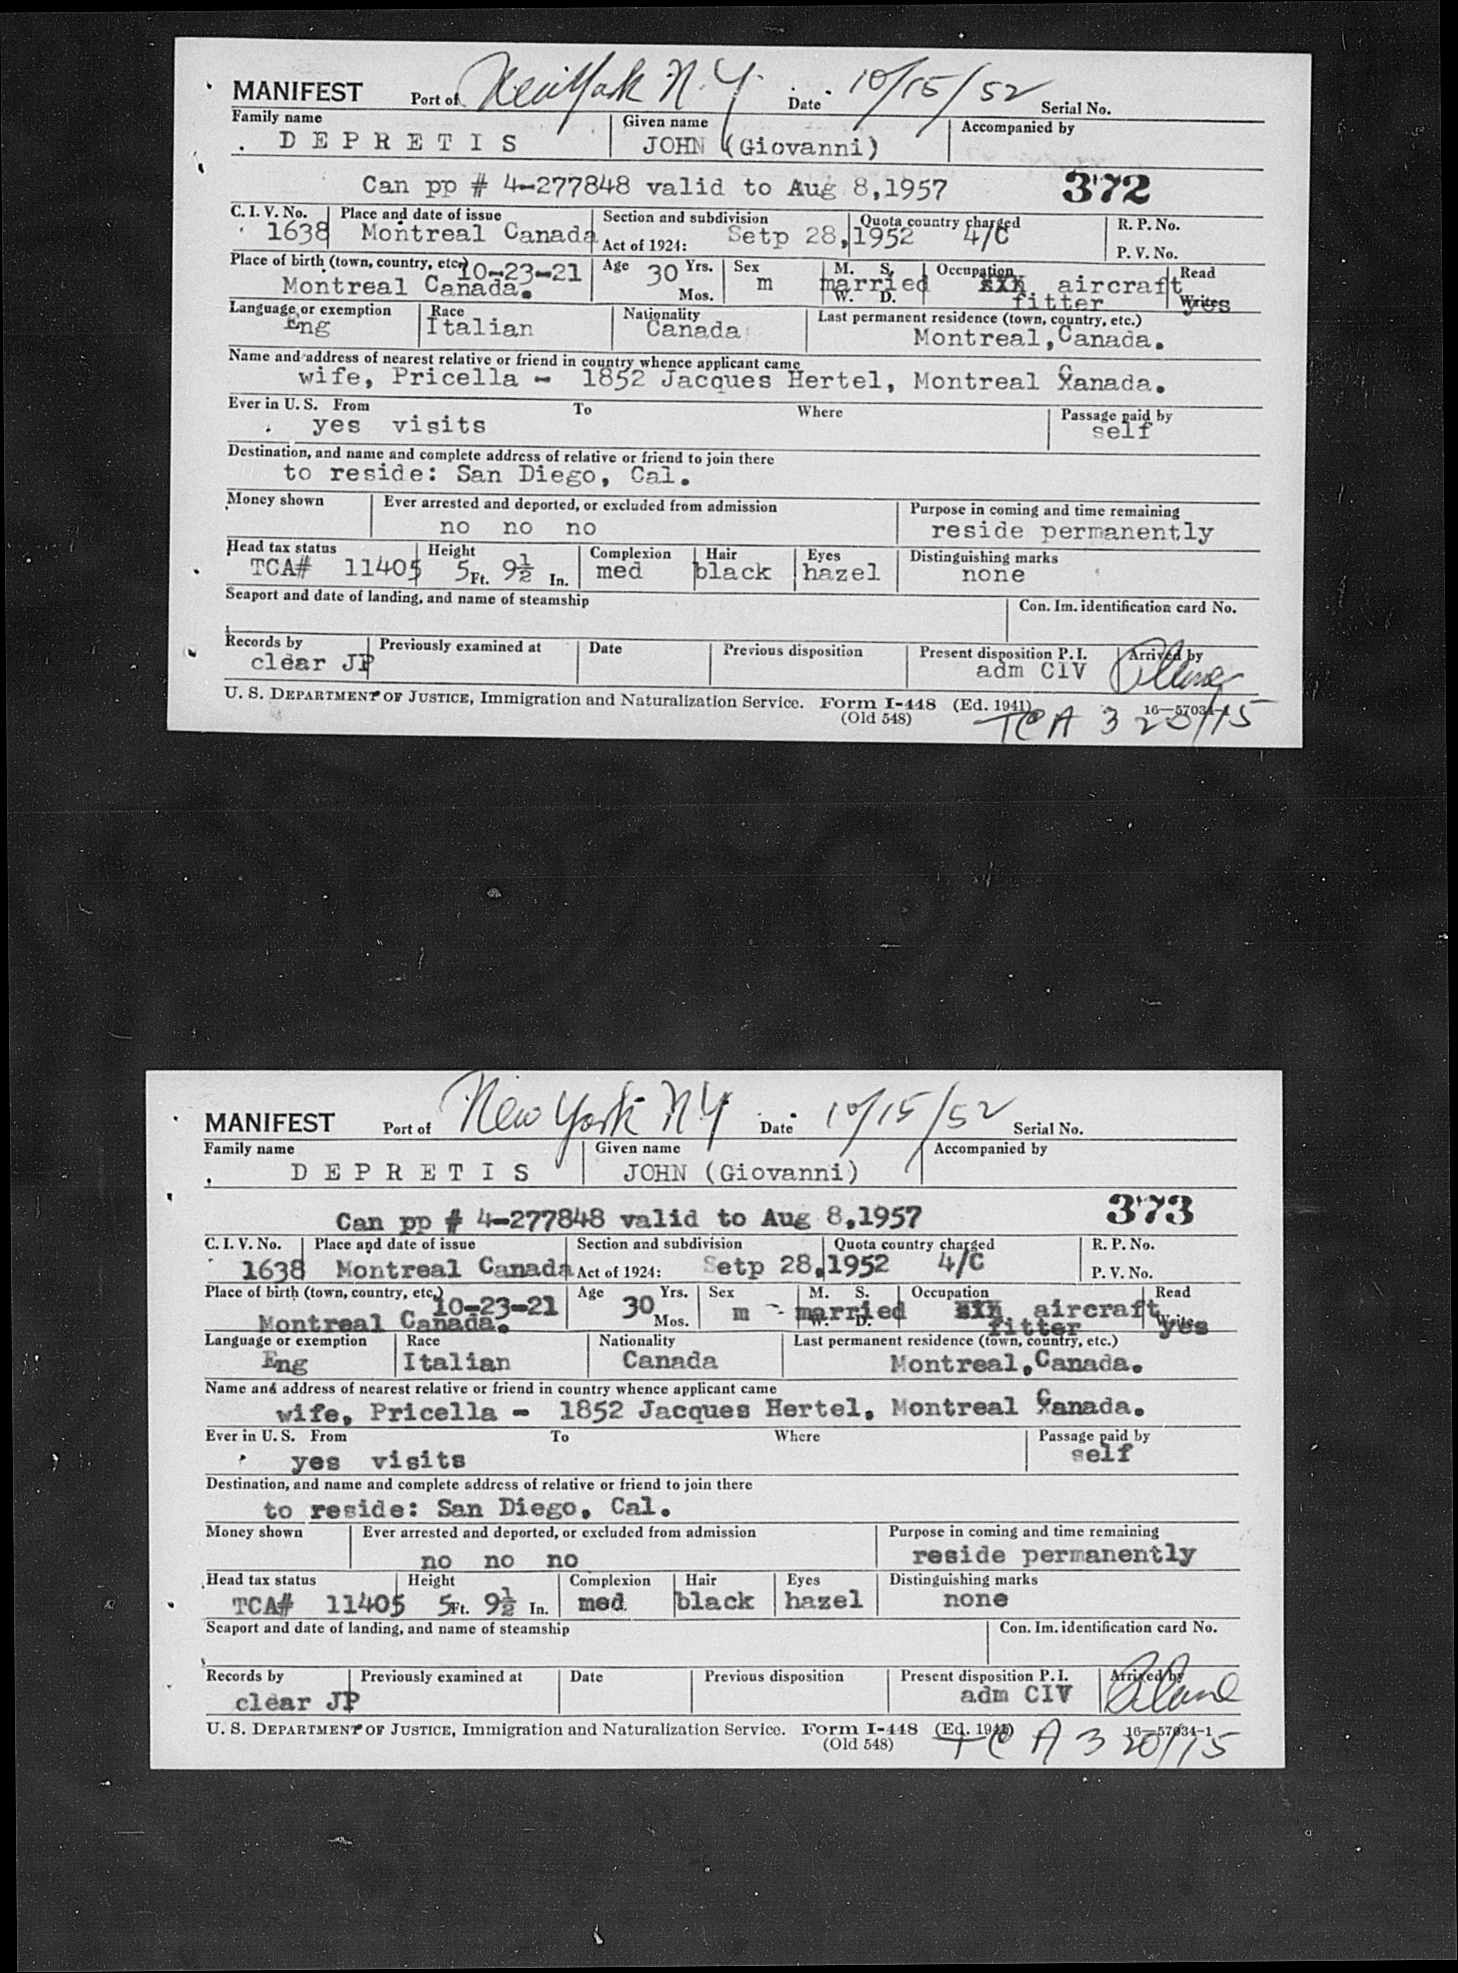 MANIFEST Port of New York N.Y. Date 10/15/52 Serial No.
Family name Given name Accompanied by
D E P R E T I S JOHN (Giovanni)
Can pp # 4-277848 valid to Aug 8,1957 372
C. I. V. No. Place and date of issue Section and subdivision Quota country charged R. P. No.
1638 Montreal Canada Act of 1924: Setp 28,1952 4/C P. V. No.
Place of birth (town, country, etc.) 10-23-21 Age 30 Yrs. Sex M. S. Occupation Read
Montreal Canada. Mos. m married W. D. aircraft fitter Write yes
Language or exemption Race Nationality Last permanent residence (town, country, etc.)
Eng Italian Canada Montreal,Canada.
Name and address of nearest relative or friend in country whence applicant came
wife, Pricella - 1852 Jacques Hertel, Montreal Canada.
Ever in U. S. From To Where Passage paid by
yes visits self
Destination, and name and complete address of relative or friend to join there
to reside: San Diego, Cal.
Money shown Ever arrested and deported, or excluded from admission Purpose in coming and time remaining
no no no reside permanently
Head tax status Height Complexion Hair Eyes Distinguishing marks
TCA# 11405 5 Ft. 9½ In. med black hazel none
Seaport and date of landing, and name of steamship Con. Im. identification card No.
Records by Previously examined at Date Previous disposition Present disposition P. I. Arrived by
clear JP adm CIV
U. S. DEPARTMENT OF JUSTICE, Immigration and Naturalization Service. Form I-448 (Ed. 1941) 16—57034-1
(Old 548) TCA 320/15
MANIFEST Port of New York NY Date 10/15/52 Serial No.
Family name Given name Accompanied by
D E P R E T I S JOHN (Giovanni)
373
Can pp # 4-277848 valid to Aug 8,1957
C. I. V. No. Place and date of issue Section and subdivision Quota country charged R. P. No.
1638 Montreal Canada Act of 1924: Setp 28,1952 4/C P. V. No.
Place of birth (town, country, etc.) 10-23-21 Age 30 Yrs. Sex M. S. Occupation Read
Montreal Canada. Mos. m - married W. D. aircraft fitter Write yes
Language or exemption Race Nationality Last permanent residence (town, country, etc.)
Eng Italian Canada Montreal,Canada.
Name and address of nearest relative or friend in country whence applicant came
wife, Pricella - 1852 Jacques Hertel, Montreal Canada.
Ever in U. S. From To Where Passage paid by
yes visits self
Destination, and name and complete address of relative or friend to join there
to reside: San Diego, Cal.
Money shown Ever arrested and deported, or excluded from admission Purpose in coming and time remaining
no no no reside permanently
Head tax status Height Complexion Hair Eyes Distinguishing marks
TCA# 11405 5 Ft. 9½ In. med black hazel none
Seaport and date of landing, and name of steamship Con. Im. identification card No.
Records by Previously examined at Date Previous disposition Present disposition P. I. Arrived by
clear JP adm CIV
U. S. DEPARTMENT OF JUSTICE, Immigration and Naturalization Service. Form I-448 (Ed. 1941) 16—57034-1
(Old 548) TCA 320/15